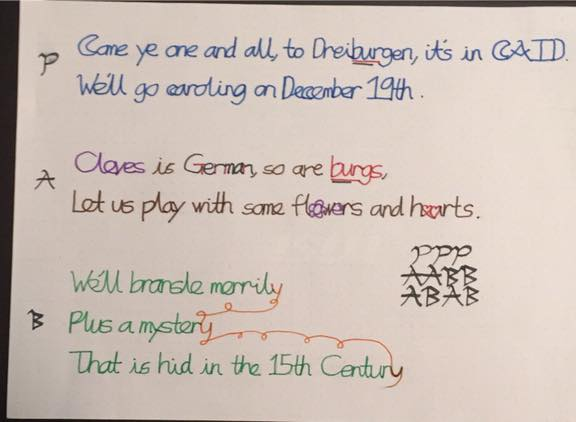 P
Come ye one and all, to Dreiburgen, it's in CAID.
We'll go caroling on December 19th.
A
Cleves is German, so are burgs,
Let us play with some flowers and hearts.
PPP
AABB
ABAB
We'll bransle merrily
B
Plus a mystery
That is hid in the 15th Century